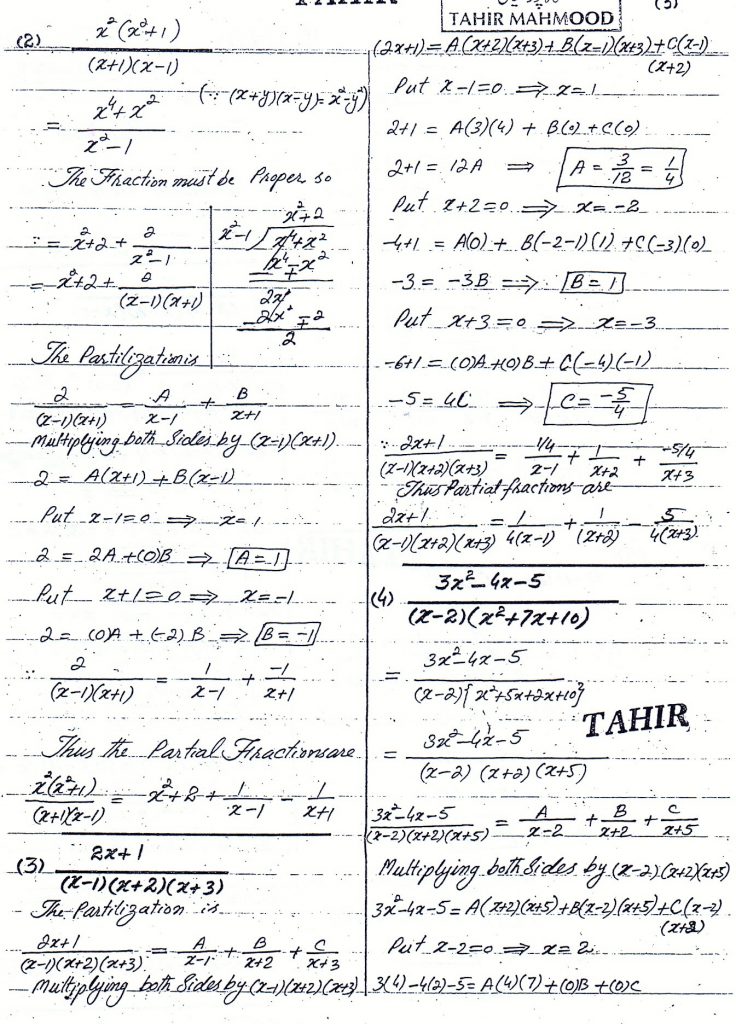 TAHIR
TAHIR MAHMOOD
(2) x²(x²+1) / (x+1)(x-1)
= x⁴+x² / x²-1 (∵ (x+y)(x-y)=x²-y²)
The Fraction must be Proper so
∵ = x²+2 + 2 / x²-1
= x²+2 + 2 / (x-1)(x+1)
x²+2
x²-1 ) x⁴+x²
x⁴ ∓ x²
2x²
-2x² ∓ 2
2
The Partilization is
2 / (x-1)(x+1) = A / x-1 + B / x+1
Multiplying both Sides by (x-1)(x+1)
2 = A(x+1) + B(x-1)
Put x-1=0 ⟹ x=1
2 = 2A +(0)B ⟹ A=1
Put x+1=0 ⟹ x=-1
2 = (0)A + (-2)B ⟹ B=-1
∵ 2 / (x-1)(x+1) = 1 / x-1 + -1 / x+1
Thus the Partial Fractions are
x²(x²+1) / (x+1)(x-1) = x²+2 + 1 / x-1 - 1 / x+1
(3) 2x+1 / (x-1)(x+2)(x+3)
The Partilization is
2x+1 / (x-1)(x+2)(x+3) = A / x-1 + B / x+2 + C / x+3
Multiplying both Sides by (x-1)(x+2)(x+3)
(2x+1) = A(x+2)(x+3) + B(x-1)(x+3) + C(x-1)
(x+2)
Put x-1=0 ⟹ x=1
2+1 = A(3)(4) + B(0) + C(0)
2+1 = 12A ⟹ A = 3/12 = 1/4
Put x+2=0 ⟹ x=-2
-4+1 = A(0) + B(-2-1)(1) + C(-3)(0)
-3 = -3B ⟹ B=1
Put x+3=0 ⟹ x=-3
-6+1 = (0)A+(0)B + C(-4)(-1)
-5 = 4C ⟹ C = -5/4
∵ 2x+1 / (x-1)(x+2)(x+3) = 1/4 / x-1 + 1 / x+2 + -5/4 / x+3
Thus Partial fractions are
2x+1 / (x-1)(x+2)(x+3) = 1 / 4(x-1) + 1 / (x+2) - 5 / 4(x+3)
(4) 3x²-4x-5 / (x-2)(x²+7x+10)
= 3x²-4x-5 / (x-2){x²+5x+2x+10}
TAHIR
= 3x²-4x-5 / (x-2)(x+2)(x+5)
3x²-4x-5 / (x-2)(x+2)(x+5) = A / x-2 + B / x+2 + C / x+5
Multiplying both Sides by (x-2)(x+2)(x+5)
3x²-4x-5 = A(x+2)(x+5) + B(x-2)(x+5) + C(x-2)
(x+2)
Put x-2=0 ⟹ x=2
3(4)-4(2)-5 = A(4)(7) + (0)B + (0)C